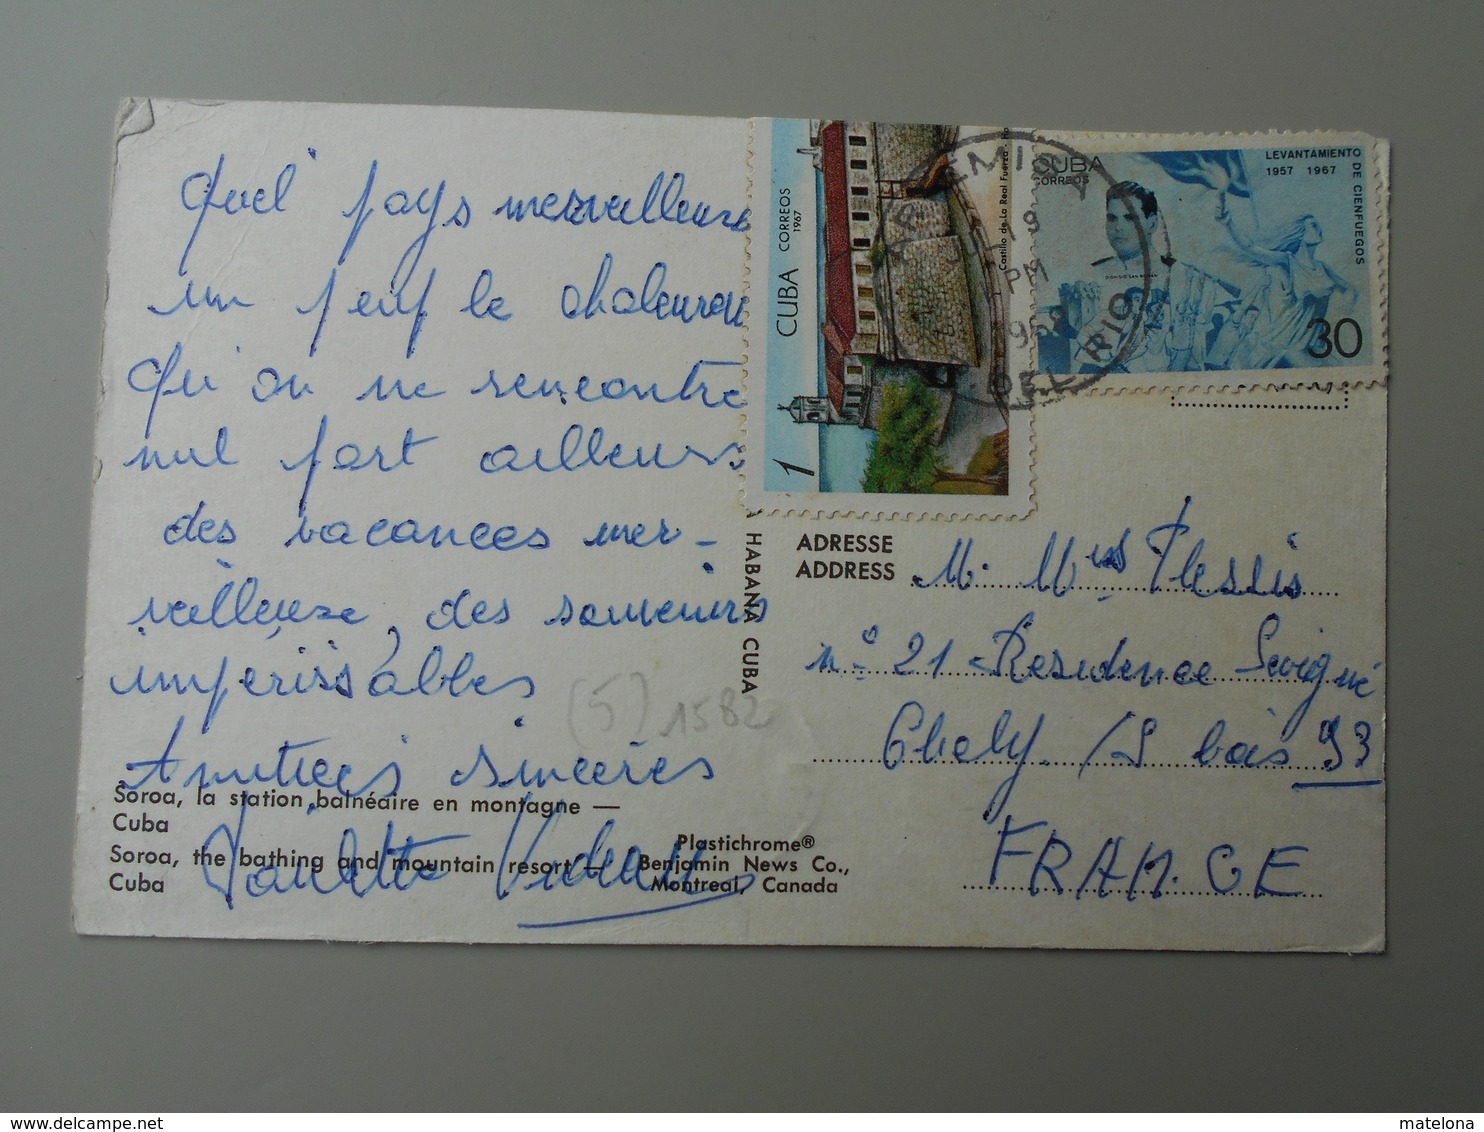 Quel pays merveilleux
un peuple chaleureux
qu'on ne rencontre
nul part ailleurs
des vacances mer-
veilleuse, des souvenirs
impérissables
Amitiés sincères
(5) 1582
Soroa, la station balnéaire en montagne —
Cuba
Soroa, the bathing and mountain resort —
Cuba
Plastichrome®
Benjamin News Co.,
Montreal, Canada
HABANA CUBA
CUBA CORREOS
1967
1
Castillo de La Real Fuerza
CUBA
CORREOS
LEVANTAMIENTO
1957 1967
DE CIENFUEGOS
DIONISIO SAN ROMAN
30
ARTEMISA
19
PM
1968
DEL RIO
ADRESSE
ADDRESS
M. Mus Plessis
n° 21 Residence Sevigné
Clichy /S bois 93
FRANCE
matelona